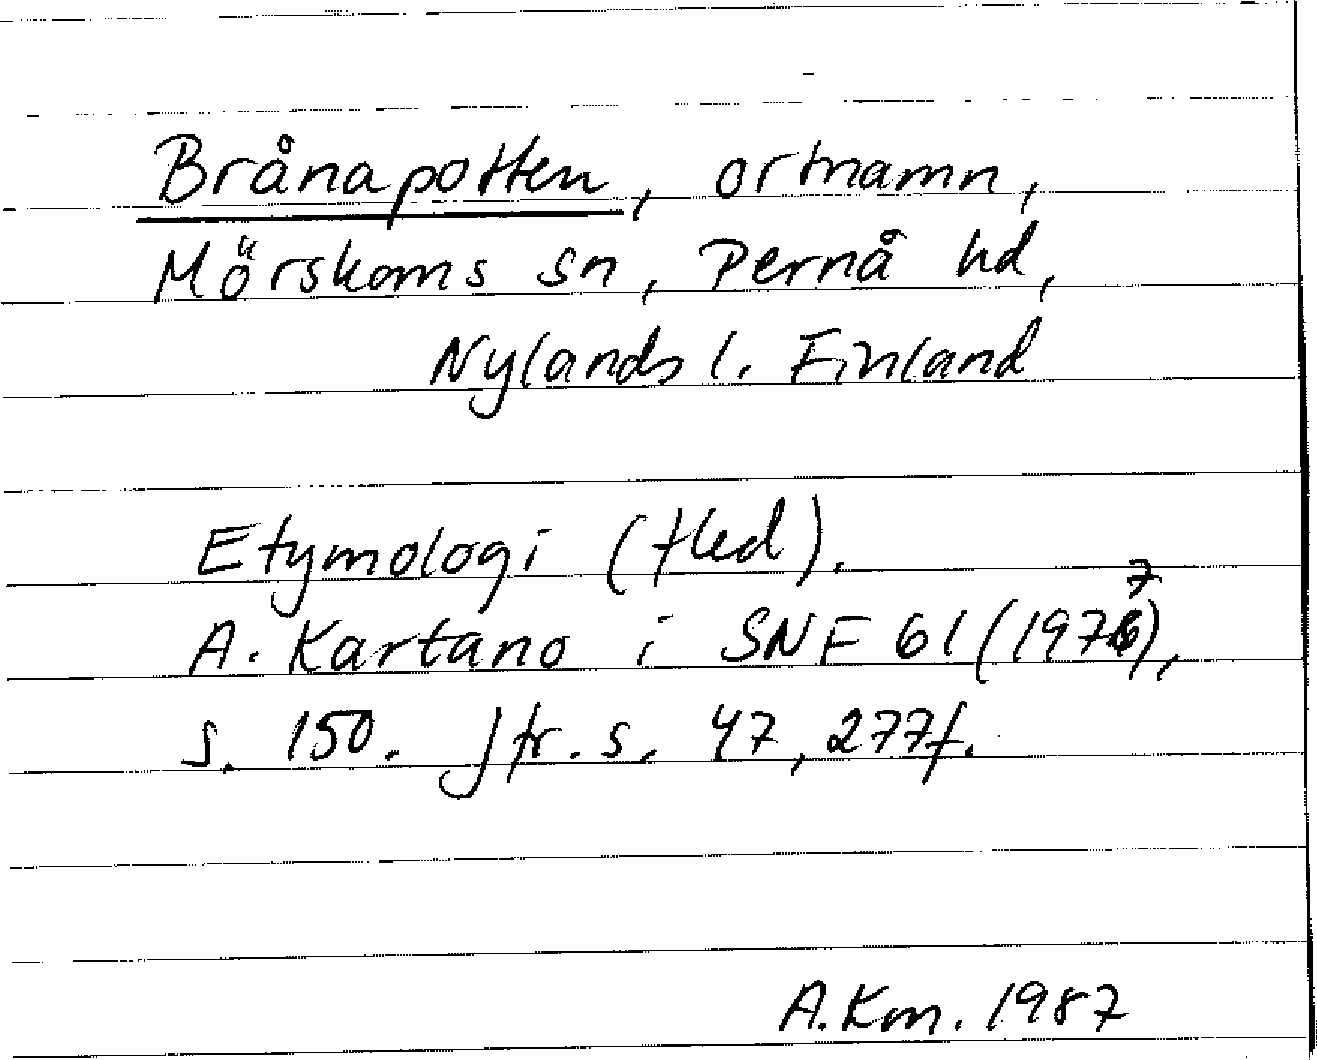 Brånapotten, ortnamn,
Mörskoms sn, Pernå hd,
Nylands l. Finland
Etymologi (fled).
A. Kartano i SNF 61 (1977),
s. 150. Jfr. s. 47, 277f.
A.Km. 1987